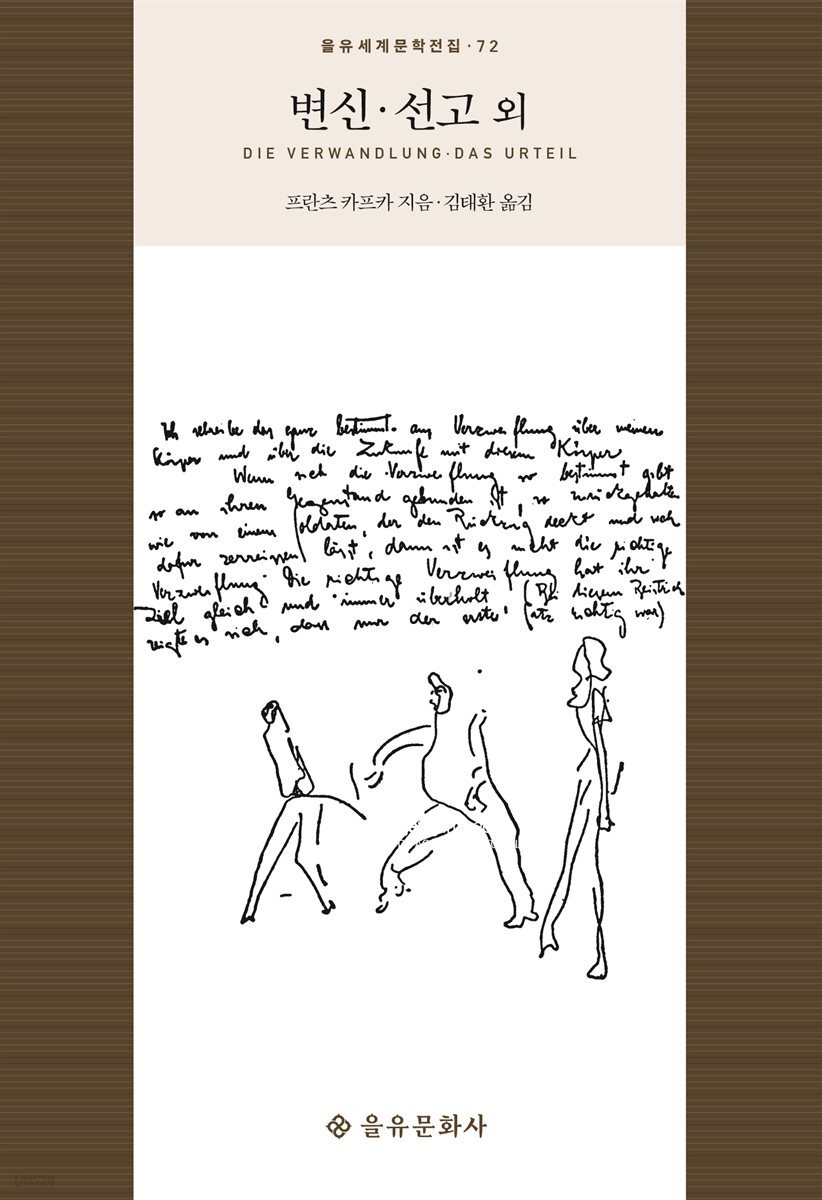 을유세계문학전집·72
변신·선고 외
DIE VERWANDLUNG·DAS URTEIL
프란츠 카프카 지음·김태환 옮김
Ich schreibe das ganz bestimmt aus Verzweiflung über meinen
Körper und über die Zukunft mit diesem Körper
Wenn sich die Verzweiflung so bestimmt gibt
so an ihren Gegenstand gebunden ist, so zurückgehalten
wie von einem Soldaten, der den Rückzug deckt und sich
dafür zerreissen lässt, dann ist es nicht die richtige
Verzweiflung Die richtige Verzweiflung hat ihr
Ziel gleich und immer überholt, (Bei diesem Beistrich
zeigte es sich, dass nur der erste Satz richtig war)
을유문화사
yes24